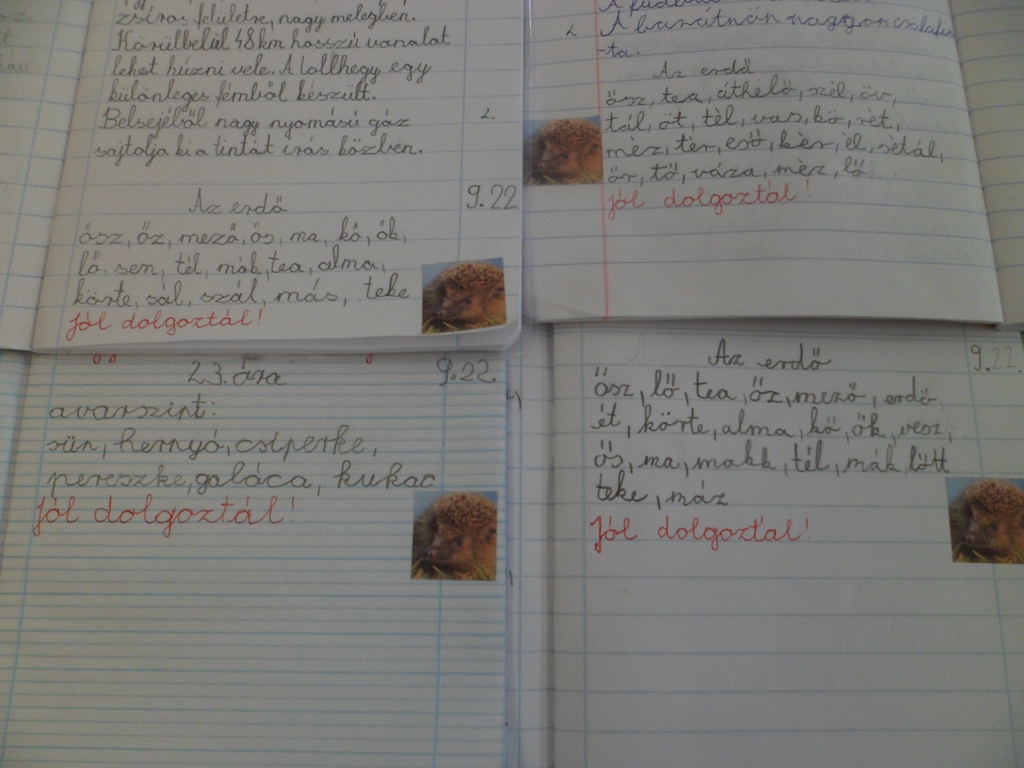 zsíros felületre, nagy melegben.
Körülbelül 48 km hosszú vonalat
lehet húzni vele. A tollhegy egy
különleges fémből készült.
Belsejéből nagy nyomású gáz
sajtolja ki a tintát írás közben.
Az erdő
9.22
ősz, őz, mező, ős, ma, kő, ők,
lő, sem, tél, mák, tea, alma,
körte, sál, szál, más, teke
Jól dolgoztál!
A barátnőm nagyon
ta.
2.
Az erdő
ősz, tea, áthelő, szél, öv,
tál, öt, tél, vas, kö, rét,
méz, tér, eső, kér, él, sétál,
őr, tő, váza, mér, lő
Jól dolgoztál!
23. óra
9.22.
avarszint:
sün, hernyó, csiperke,
pereszke, galóca, kukac
Jól dolgoztál!
Az erdő
9.22.
Ősz, lő, tea, őz, mező, erdő,
ét, körte, alma, kő, ők, vesz,
ős, ma, makk, tél, mák, lőtt
teke, máz
Jól dolgoztál!